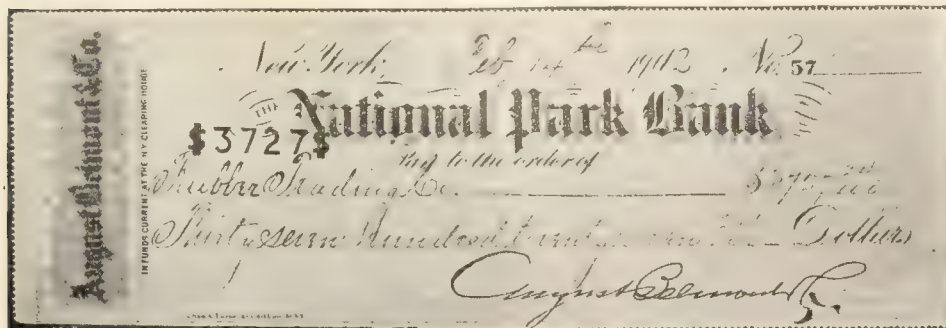 August Belmont & Co.
IN FUNDS CURRENT AT THE N.Y. CLEARING HOUSE
New York, Feb 14th 1912 No. 57
THE
National Park Bank
$3727$
Pay to the order of
Rubber Trading Co.
Thirty seven Hundred twenty Dollars
August Belmont & Co.